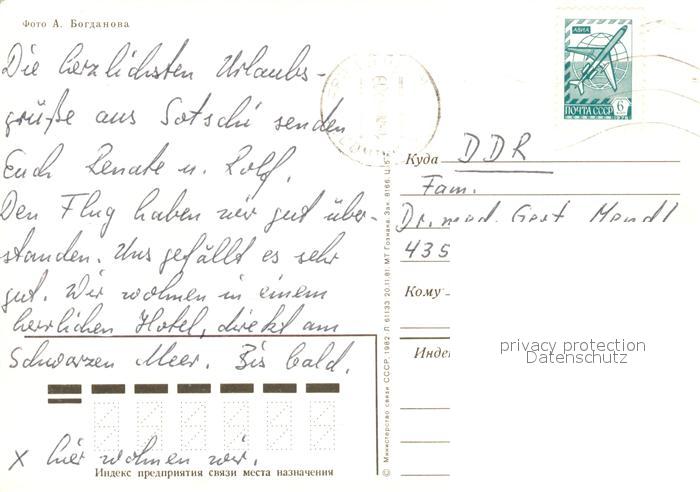 Фото А. Богданова
Die herzlichsten Urlaubs-
grüße aus Sotschi senden
Euch Renate u. Rolf.
Den Flug haben wir gut über-
standen. Uns gefällt es sehr
gut. Wir wohnen in einem
herrlichen Hotel, direkt am
Schwarzen Meer. Bis bald.
x hier wohnen wir.
Индекс предприятия связи места назначения
© Министерство связи СССР, 1982 Л 61133 20.11.81. МТ Гознака. Зак. 8166. Ц. 5
АВИА
ПОЧТА СССР 6
Куда DDR
Fam.
Dr. med. Gert Mendl
435
Кому
Инде
privacy protection
Datenschutz